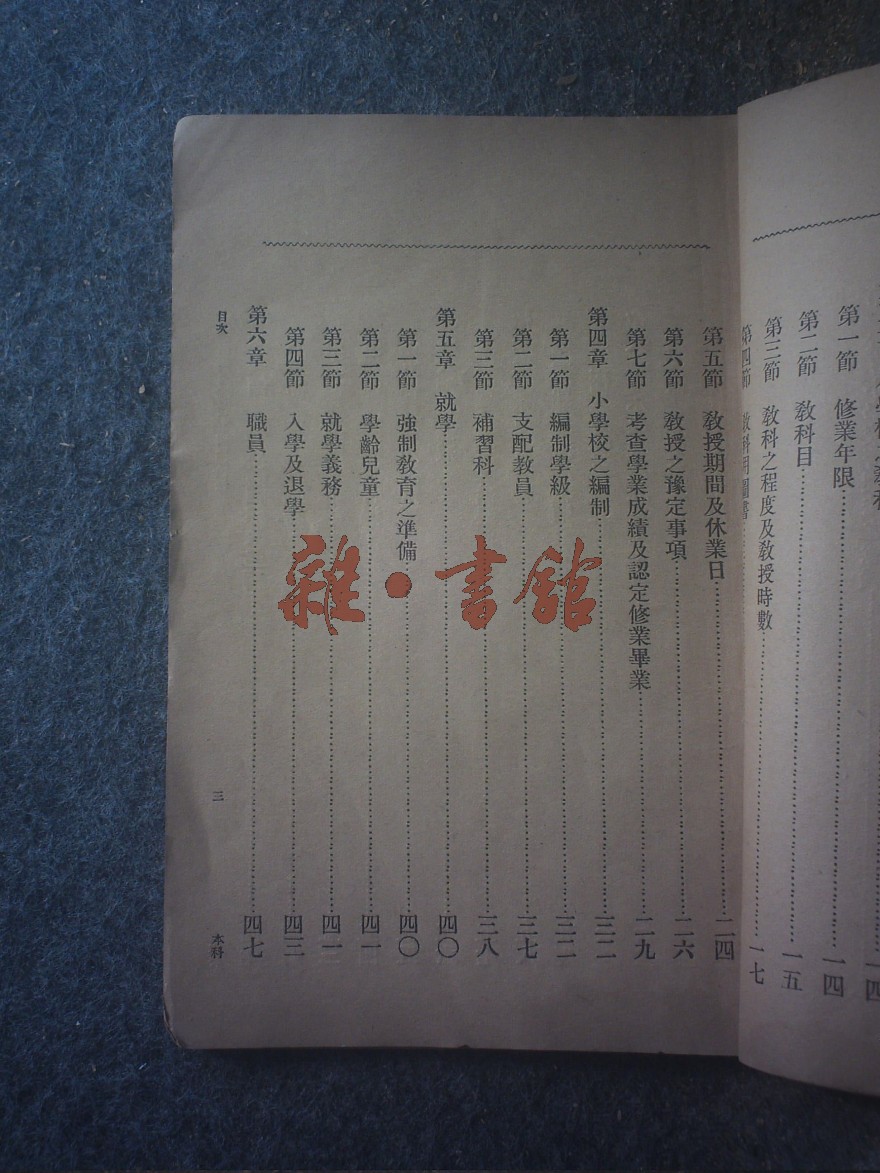 第一節　修業年限……一四
第二節　教科目……一五
第三節　教科之程度及教授時數……一七
第四節　教科用圖書
第五節　教授期間及休業日……二四
第六節　教授之豫定事項……二六
第七節　考查學業成績及認定修業畢業……二九
第四章　小學校之編制……三二
第一節　編制學級……三二
第二節　支配教員……三七
第三節　補習科……三八
第五章　就學……四〇
第一節　強制教育之準備……四〇
第二節　學齡兒童……四一
第三節　就學義務……四一
第四節　入學及退學……四三
第六章　職員……四七
目次　三　本科
雜·書館